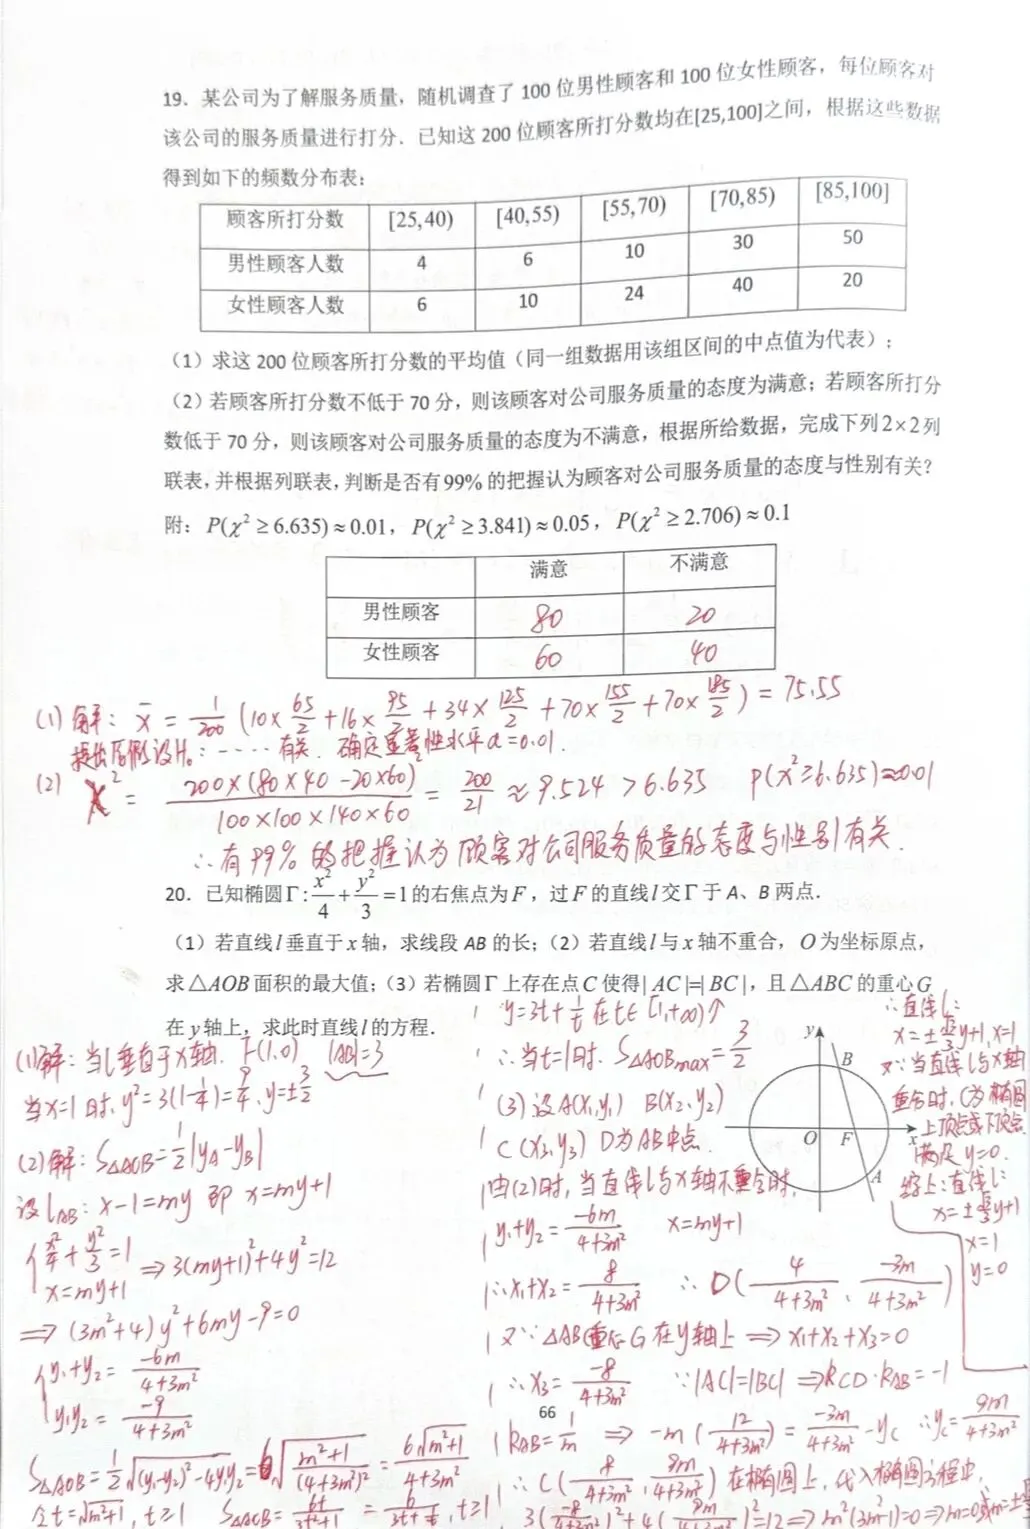 19．某公司为了解服务质量，随机调查了 100 位男性顾客和 100 位女性顾客，每位顾客对
该公司的服务质量进行打分．已知这 200 位顾客所打分数均在[25,100]之间，根据这些数据
得到如下的频数分布表：
顾客所打分数 [25,40) [40,55) [55,70) [70,85) [85,100]
男性顾客人数 4 6 10 30 50
女性顾客人数 6 10 24 40 20
（1）求这 200 位顾客所打分数的平均值（同一组数据用该组区间的中点值为代表）；
（2）若顾客所打分数不低于 70 分，则该顾客对公司服务质量的态度为满意；若顾客所打分
数低于 70 分，则该顾客对公司服务质量的态度为不满意，根据所给数据，完成下列 2×2 列
联表，并根据列联表，判断是否有 99% 的把握认为顾客对公司服务质量的态度与性别有关？
附：P(χ²≥6.635)≈0.01，P(χ²≥3.841)≈0.05，P(χ²≥2.706)≈0.1
满意 不满意
男性顾客 80 20
女性顾客 60 40
(1) 解：x̄ = 1/200 (10×65/2+16×95/2+34×125/2+70×155/2+70×185/2) = 75.55
提出原假设H₀：…… 有关．确定显著性水平α=0.01．
(2) χ² = 200×(80×40-20×60)²/(100×100×140×60) = 200/21 ≈ 9.524 > 6.635 P(x²≥6.635)≈0.01
∴有99%的把握认为顾客对公司服务质量的态度与性别有关．
20．已知椭圆Γ: x²/4+y²/3=1的右焦点为 F，过 F 的直线 l 交 Γ 于 A、B 两点．
（1）若直线 l 垂直于 x 轴，求线段 AB 的长；（2）若直线 l 与 x 轴不重合，O 为坐标原点，
求△AOB 面积的最大值；（3）若椭圆 Γ 上存在点 C 使得| AC |=| BC |，且△ABC 的重心 G
在 y 轴上，求此时直线 l 的方程．
(1)解：当l垂直于x轴．F(1,0) |AB|=3
当x=1时，y²=3(1-1/4)=9/4，y=±3/2
(2)解：S△AOB=1/2|yA-yB|
设lAB：x-1=my 即 x=my+1
{x²/4+y²/3=1
x=my+1 ⇒3(my+1)²+4y²=12
⇒(3m²+4)y²+6my-9=0
{y₁+y₂=-6m/(4+3m²)
y₁y₂=-9/(4+3m²)
S△AOB=1/2√((y₁-y₂)²-4y₁y₂)=6√((m²+1)/(4+3m²)²)=6√(m²+1)/(4+3m²)
令t=√(m²+1)，t≥1 S△AOB=6t/(3t²+1)=6/(3t+1/t)，t≥1
y=3t+1/t在t∈[1,+∞)↑
∴当t=1时．S△AOBmax=3/2
(3)设A(x₁,y₁) B(x₂,y₂)
C(x₃,y₃) D为AB中点．
由(2)时，当直线l与x轴不重合时，
y₁+y₂=-6m/(4+3m²) x=my+1
∴x₁+x₂=8/(4+3m²) ∴D(4/(4+3m²)，-3m/(4+3m²))
又∵△ABC重心G在y轴上⇒x₁+x₂+x₃=0
∴x₃=-8/(4+3m²) ∵|AC|=|BC|⇒kCD·kAB=-1
kAB=1/m ⇒ -m(12/(4+3m²))=-3m/(4+3m²)-yC ∴yC=9m/(4+3m²)
∴C(-8/(4+3m²)，9m/(4+3m²))在椭圆上，代入椭圆方程中，
3(-8/(4+3m²))²+4(9m/(4+3m²))²=12⇒m²(3m²-1)=0⇒m=0或m=±
y B O F x A
∴直线l：
x=±√3/3y+1，x=1
又∵当直线l与x轴
重合时，C为椭圆
上顶点或下顶点．
满足y=0．
综上：直线l：
x=±√3/3y+1
x=1
y=0
66